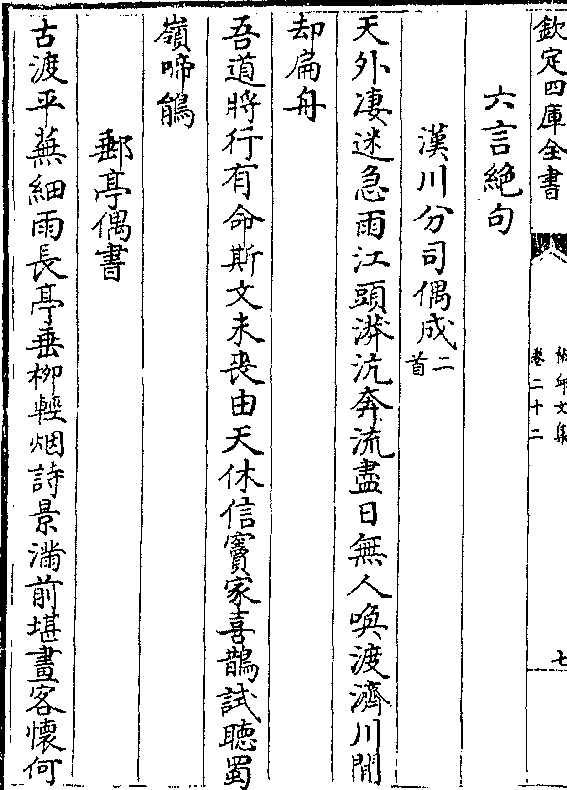 欽定四庫全書
椒邱文集
卷二十二
七
六言絶句
漢川分司偶成二首
天外凄迷急雨江頭漭沆奔流盡日無人喚渡濟川閒
却扁舟
吾道將行有命斯文未喪由天休信竇家喜鵲試聽蜀
嶺啼鵑
郵亭偶書
古渡平蕪細雨長亭垂柳輕烟詩景滿前堪畫客懷何